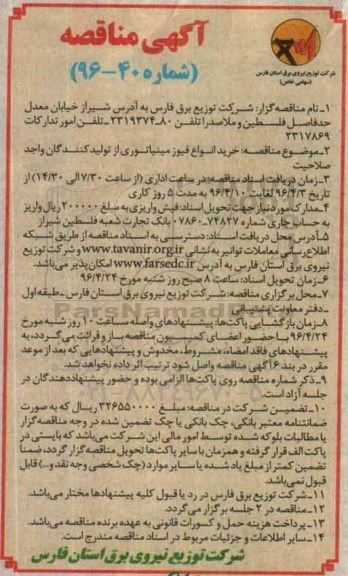 آگهی مناقصه
(شماره ۴۰-۹۶)
شرکت توزیع نیروی برق استان فارس
(سهامی خاص)
۱-نام مناقصه گزار: شرکت توزیع برق فارس به آدرس شیراز خیابان معدل
حدفاصل فلسطین و ملاصدرا تلفن ۸۰-۲۳۱۹۳۷۴-تلفن امور تدارکات
۲۳۱۷۸۶۹
۲-موضوع مناقصه: خرید انواع فیوز مینیاتوری از تولیدکنندگان واجد
صلاحیت
۳-زمان دریافت اسناد مناقصه: در ساعت اداری (از ساعت ۷/۳۰ الی ۱۴/۳۰) از
تاریخ ۹۶/۴/۳ لغایت ۹۶/۴/۱۰ به مدت ۵ روز کاری
۴-مدارک مورد نیاز جهت تحویل اسناد: فیش واریزی به مبلغ ۲۰۰۰۰۰ ریال واریز
به حساب جاری شماره ۰۷۸۶۰۷۴۸۲۷ بانک تجارت شعبه فلسطین شیراز
۵-آدرس محل دریافت اسناد: دسترسی به اسناد مناقصه از طریق شبکه
اطلاع رسانی معاملات توانیر به نشانی www.tavanir.org.ir و شرکت توزیع
نیروی برق استان فارس به آدرس www.farsedc.ir امکان پذیر می باشد.
۶-زمان تحویل اسناد: ساعت ۸ صبح روز شنبه مورخ ۹۶/۴/۲۴
۷-محل برگزاری مناقصه: شرکت توزیع نیروی برق استان فارس-طبقه اول
-دفتر معاونت پشتیبانی
۸-زمان بازگشایی پاکت ها: پیشنهادهای واصله ساعت ۱۰ روز شنبه مورخ
۹۶/۴/۲۴ با حضور اعضای کمیسیون مناقصه باز و قرائت می گردد، به
پیشنهادهای فاقد امضاء، مشروط، مخدوش و پیشنهادهایی که بعد از موعد
مقرر در بند ۶ آگهی مناقصه واصل شود ترتیب اثر داده نخواهد شد.
۹-ذکر شماره مناقصه روی پاکت ها الزامی بوده و حضور پیشنهاددهندگان در
جلسه آزاد است.
۱۰-تضمین شرکت در مناقصه: مبلغ ۳۲۶۵۵۰۰۰۰ ریال که به صورت
ضمانتنامه معتبر بانکی، چک بانکی یا چک تضمین شده در وجه مناقصه گزار
یا مطالبات بلوکه شده توسط امور مالی این شرکت می باشد که بایستی در
پاکت الف قرار گرفته و همزمان با سایر پاکت ها تحویل مناقصه گزار گردد، ضمناً
تضمین کمتر از مبلغ یاد شده یا سایر موارد (چک شخصی وجه نقد و...) قابل
قبول نمی باشد.
۱۱-شرکت توزیع برق فارس در رد یا قبول کلیه پیشنهادها مختار می باشد.
۱۲-مناقصه در ۲ جلسه برگزار می گردد.
۱۳-پرداخت هزینه حمل و کسورات قانونی به عهده برنده مناقصه می باشد.
۱۴-سایر اطلاعات و جزئیات مربوط در اسناد مناقصه مندرج است.
شرکت توزیع نیروی برق استان فارس